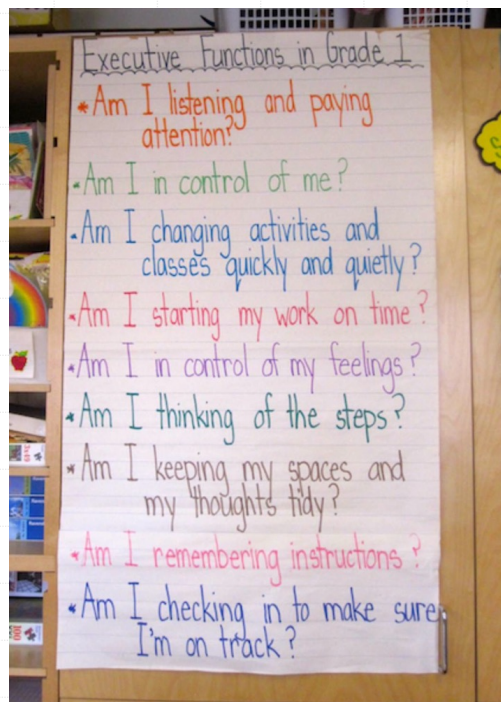 Executive Functions in Grade 1
*Am I listening and paying
attention?
*Am I in control of me?
*Am I changing activities and
classes quickly and quietly?
*Am I starting my work on time?
*Am I in control of my feelings?
*Am I thinking of the steps?
*Am I keeping my spaces and
my thoughts tidy?
*Am I remembering instructions?
*Am I checking in to make sure
I'm on track?
100